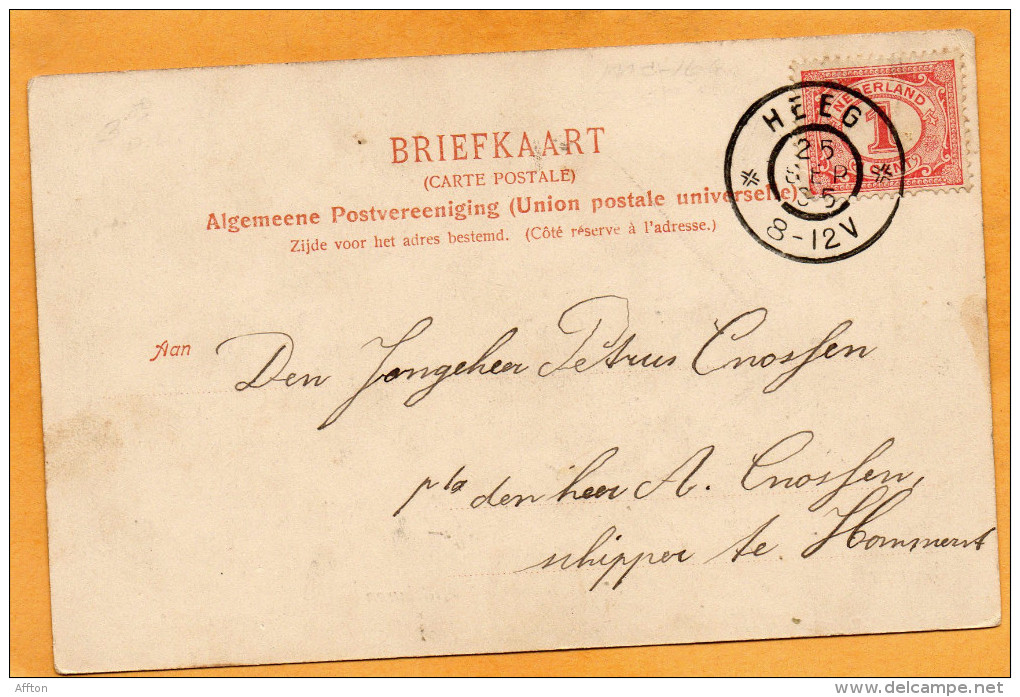 BRIEFKAART
(CARTE POSTALE)
Algemeene Postvereeniging (Union postale universelle)
Zijde voor het adres bestemd. (Côté réserve à l'adresse.)
NEDERLAND
1
CENT
HEEG
25
SEP
05
8-12V
Aan
Den Jongeheer Petrus Cnossen
p/a den heer A. Cnossen,
schipper te Hommerts
Affton
http://www.delcampe.net